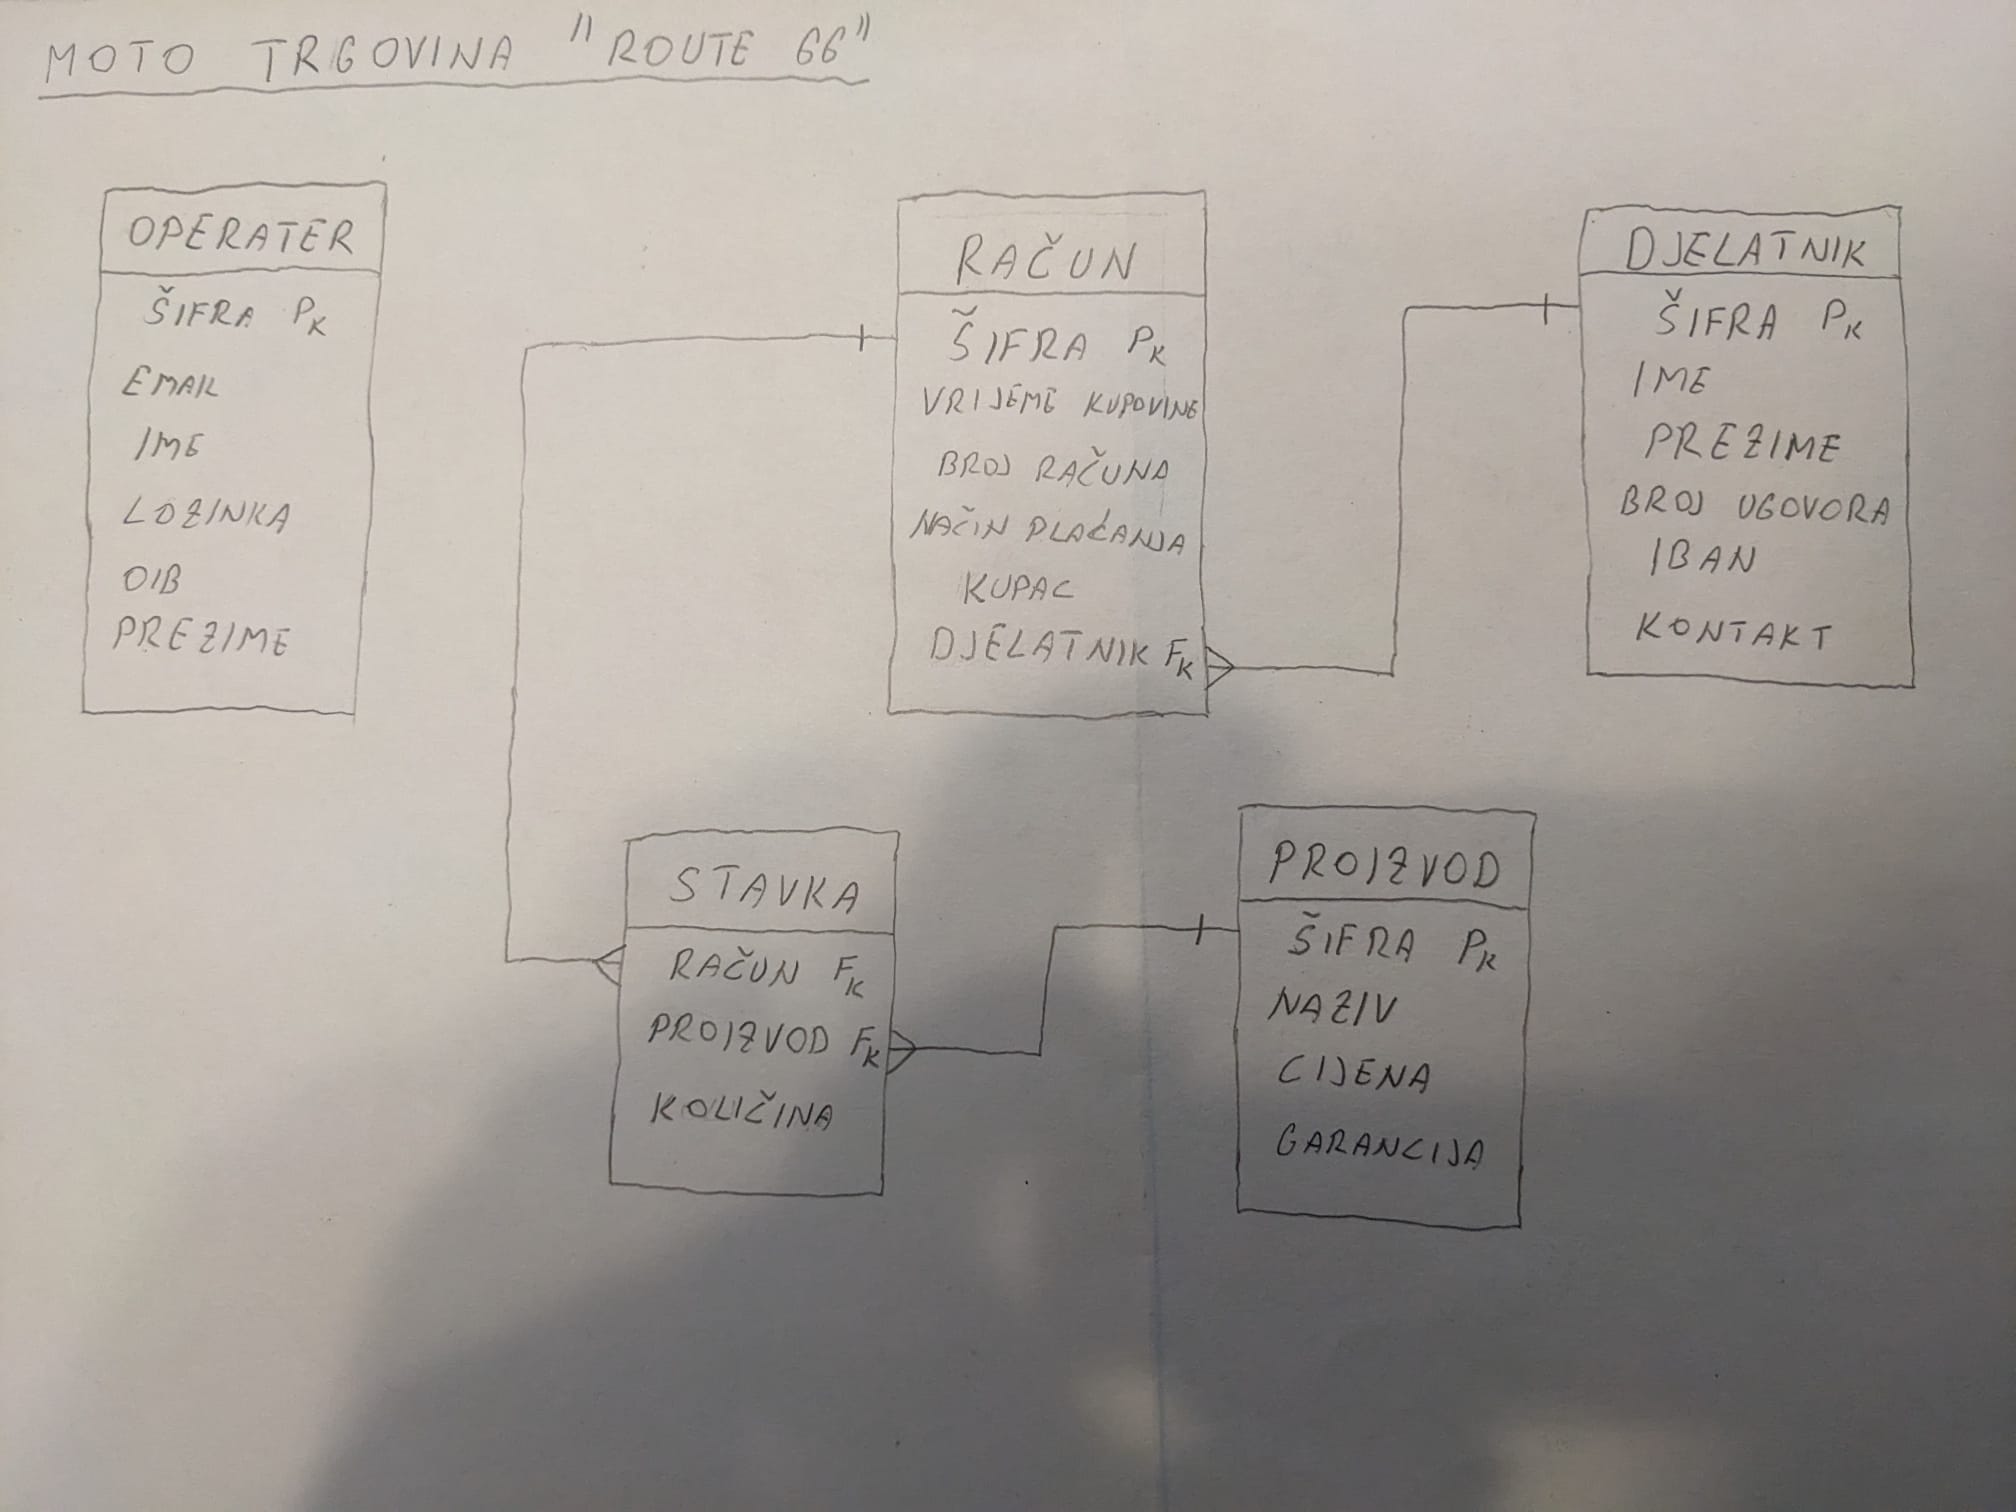 MOTO TRGOVINA "ROUTE 66"
OPERATER
ŠIFRA PK
EMAIL
IME
LOZINKA
OIB
PREZIME
RAČUN
ŠIFRA PK
VRIJEME KUPOVINE
BROJ RAČUNA
NAČIN PLAĆANJA
KUPAC
DJELATNIK FK
DJELATNIK
ŠIFRA PK
IME
PREZIME
BROJ UGOVORA
IBAN
KONTAKT
STAVKA
RAČUN FK
PROIZVOD FK
KOLIČINA
PROIZVOD
ŠIFRA PK
NAZIV
CIJENA
GARANCIJA